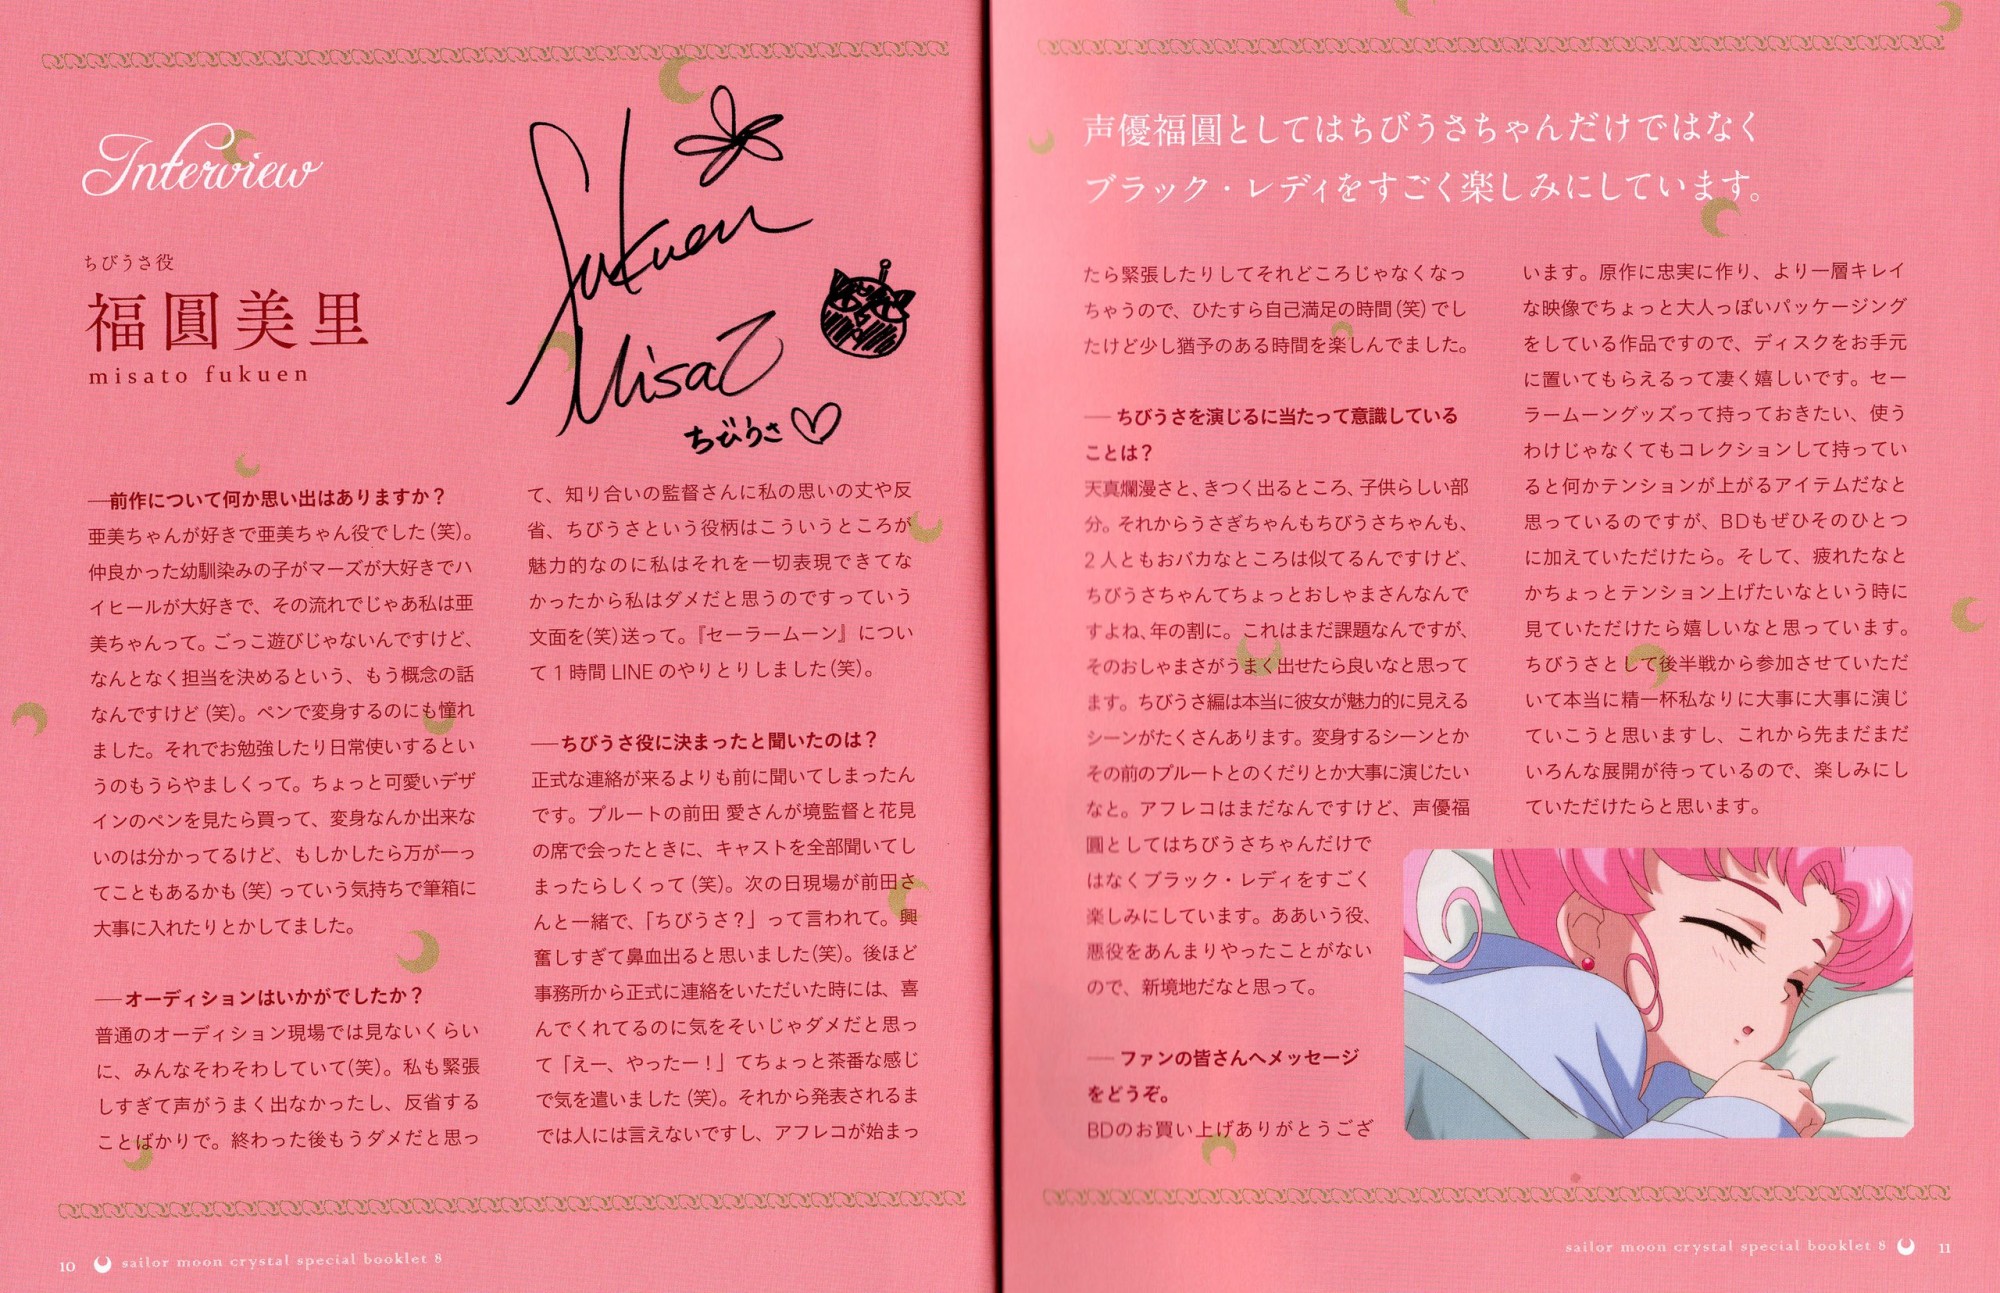 Interview
ちびうさ役
福圓美里
misato fukuen
fukuen
Misato
ちびうさ♡
──前作について何か思い出はありますか？
亜美ちゃんが好きで亜美ちゃん役でした（笑）。
仲良かった幼馴染みの子がマーズが大好きでハ
イヒールが大好きで、その流れでじゃあ私は亜
美ちゃんって。ごっこ遊びじゃないんですけど、
なんとなく担当を決めるという、もう概念の話
なんですけど（笑）。ペンで変身するのにも憧れ
ました。それでお勉強したり日常使いするとい
うのもうらやましくって。ちょっと可愛いデザ
インのペンを見たら買って、変身なんか出来な
いのは分かってるけど、もしかしたら万が一っ
てこともあるかも（笑）っていう気持ちで筆箱に
大事に入れたりとかしてました。
──オーディションはいかがでしたか？
普通のオーディション現場では見ないくらい
に、みんなそわそわしていて（笑）。私も緊張
しすぎて声がうまく出なかったし、反省する
ことばかりで。終わった後もうダメだと思っ
て、知り合いの監督さんに私の思いの丈や反
省、ちびうさという役柄はこういうところが
魅力的なのに私はそれを一切表現できてな
かったから私はダメだと思うのですっていう
文面を（笑）送って。『セーラームーン』につい
て１時間 LINE のやりとりしました（笑）。
──ちびうさ役に決まったと聞いたのは？
正式な連絡が来るよりも前に聞いてしまったん
です。プルートの前田 愛さんが境監督と花見
の席で会ったときに、キャストを全部聞いてし
まったらしくって（笑）。次の日現場が前田さ
んと一緒で、「ちびうさ？」って言われて。興
奮しすぎて鼻血出ると思いました（笑）。後ほど
事務所から正式に連絡をいただいた時には、喜
んでくれてるのに気をそいじゃダメだと思っ
て「えー、やったー！」てちょっと茶番な感じ
で気を遣いました（笑）。それから発表されるま
では人には言えないですし、アフレコが始まっ
10 sailor moon crystal special booklet 8
声優福圓としてはちびうさちゃんだけではなく
ブラック・レディをすごく楽しみにしています。
たら緊張したりしてそれどころじゃなくなっ
ちゃうので、ひたすら自己満足の時間（笑）でし
たけど少し猶予のある時間を楽しんでました。
── ちびうさを演じるに当たって意識している
ことは？
天真爛漫さと、きつく出るところ、子供らしい部
分。それからうさぎちゃんもちびうさちゃんも、
２人ともおバカなところは似てるんですけど、
ちびうさちゃんてちょっとおしゃまさんなんで
すよね、年の割に。これはまだ課題なんですが、
そのおしゃまさがうまく出せたら良いなと思って
ます。ちびうさ編は本当に彼女が魅力的に見える
シーンがたくさんあります。変身するシーンとか
その前のプルートとのくだりとか大事に演じたい
なと。アフレコはまだなんですけど、声優福
圓としてはちびうさちゃんだけで
はなくブラック・レディをすごく
楽しみにしています。ああいう役、
悪役をあんまりやったことがない
ので、新境地だなと思って。
── ファンの皆さんへメッセージ
をどうぞ。
BDのお買い上げありがとうござ
います。原作に忠実に作り、より一層キレイ
な映像でちょっと大人っぽいパッケージング
をしている作品ですので、ディスクをお手元
に置いてもらえるって凄く嬉しいです。セー
ラームーングッズって持っておきたい、使う
わけじゃなくてもコレクションして持ってい
ると何かテンションが上がるアイテムだなと
思っているのですが、BDもぜひそのひとつ
に加えていただけたら。そして、疲れたなと
かちょっとテンション上げたいなという時に
見ていただけたら嬉しいなと思っています。
ちびうさとして後半戦から参加させていただ
いて本当に精一杯私なりに大事に大事に演じ
ていこうと思いますし、これから先まだまだ
いろんな展開が待っているので、楽しみにし
ていただけたらと思います。
sailor moon crystal special booklet 8 11